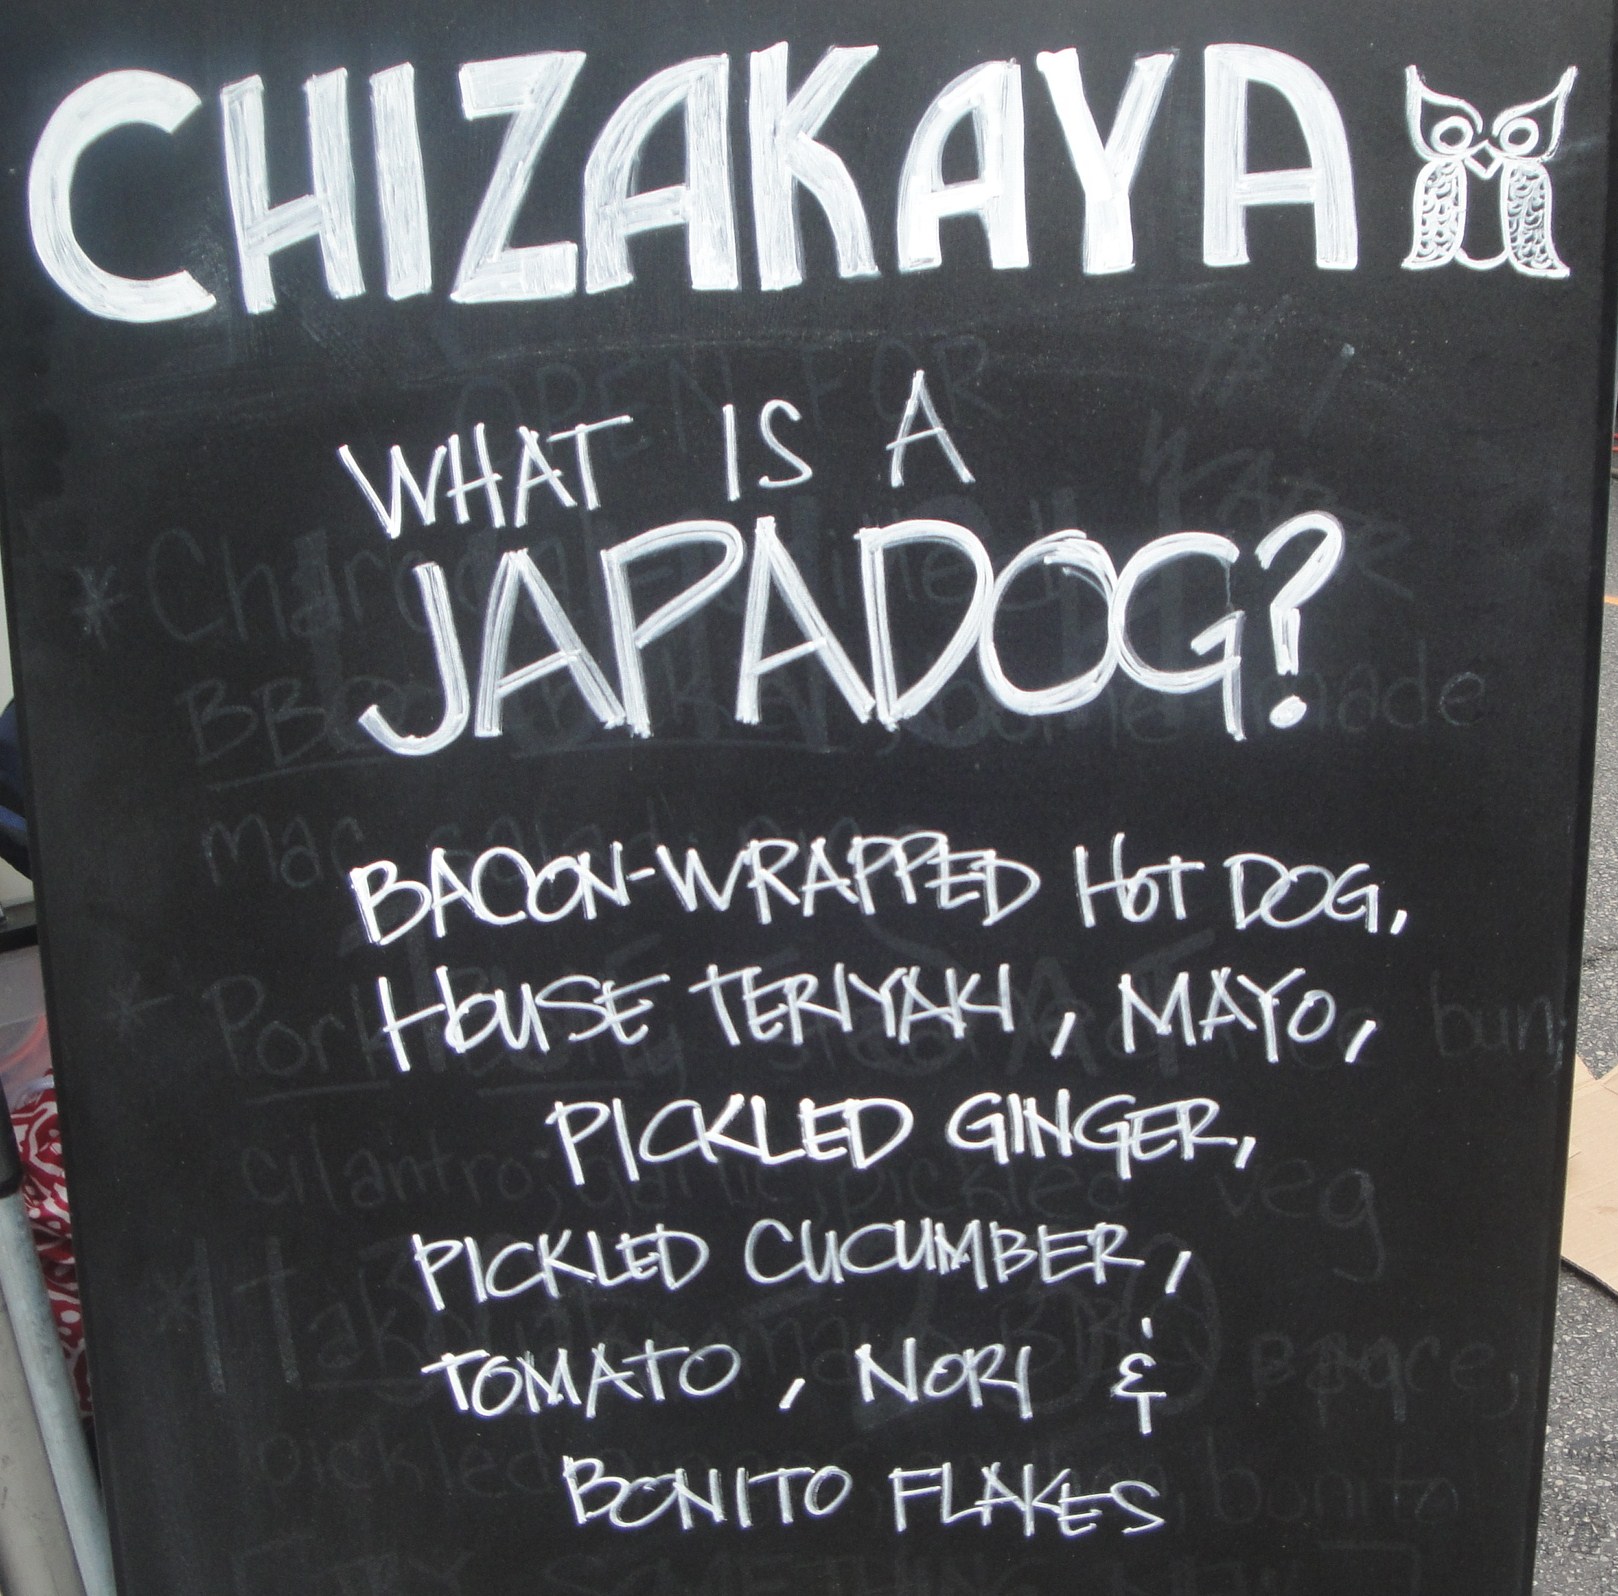 CHIZAKAYA
WHAT IS A
JAPADOG?
BACON-WRAPPED HOT DOG,
HOUSE TERIYAKI, MAYO,
PICKLED GINGER,
PICKLED CUCUMBER,
TOMATO, NORI &
BONITO FLAKES